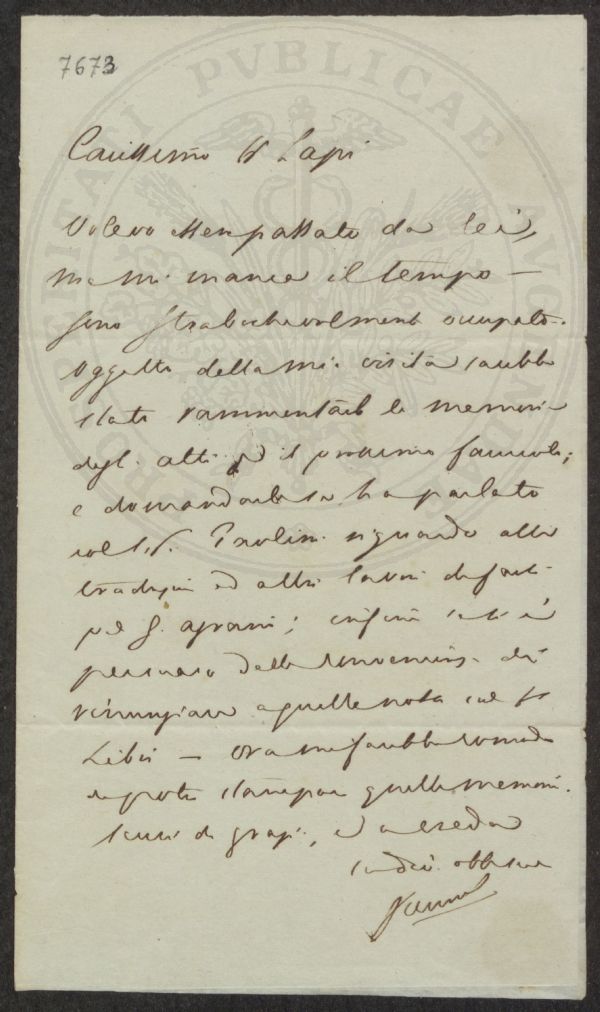 7673
PROSPERITATI PVBLICAE AVGENDAE
Carissimo Sr Lapi
Volevo esser passato da lei,
ma mi manca il tempo —
sono straboche volmente occupato.
Oggetto della mia visita sarebbe
stato rammentarle le memorie
degli atti per il prossimo fascicolo;
e domandarle se ha parlato
col Sr. Paolini riguardo alle
traduzioni ed altri lavori da farsi
pel G. agrario; infine se si è
persuaso della convenienza di
rinunziare a quella nota sul Sr
Libri — Ora mi farebbe comodo
di poter stampare quelle memorie.
Scusi di grazia, e a creda